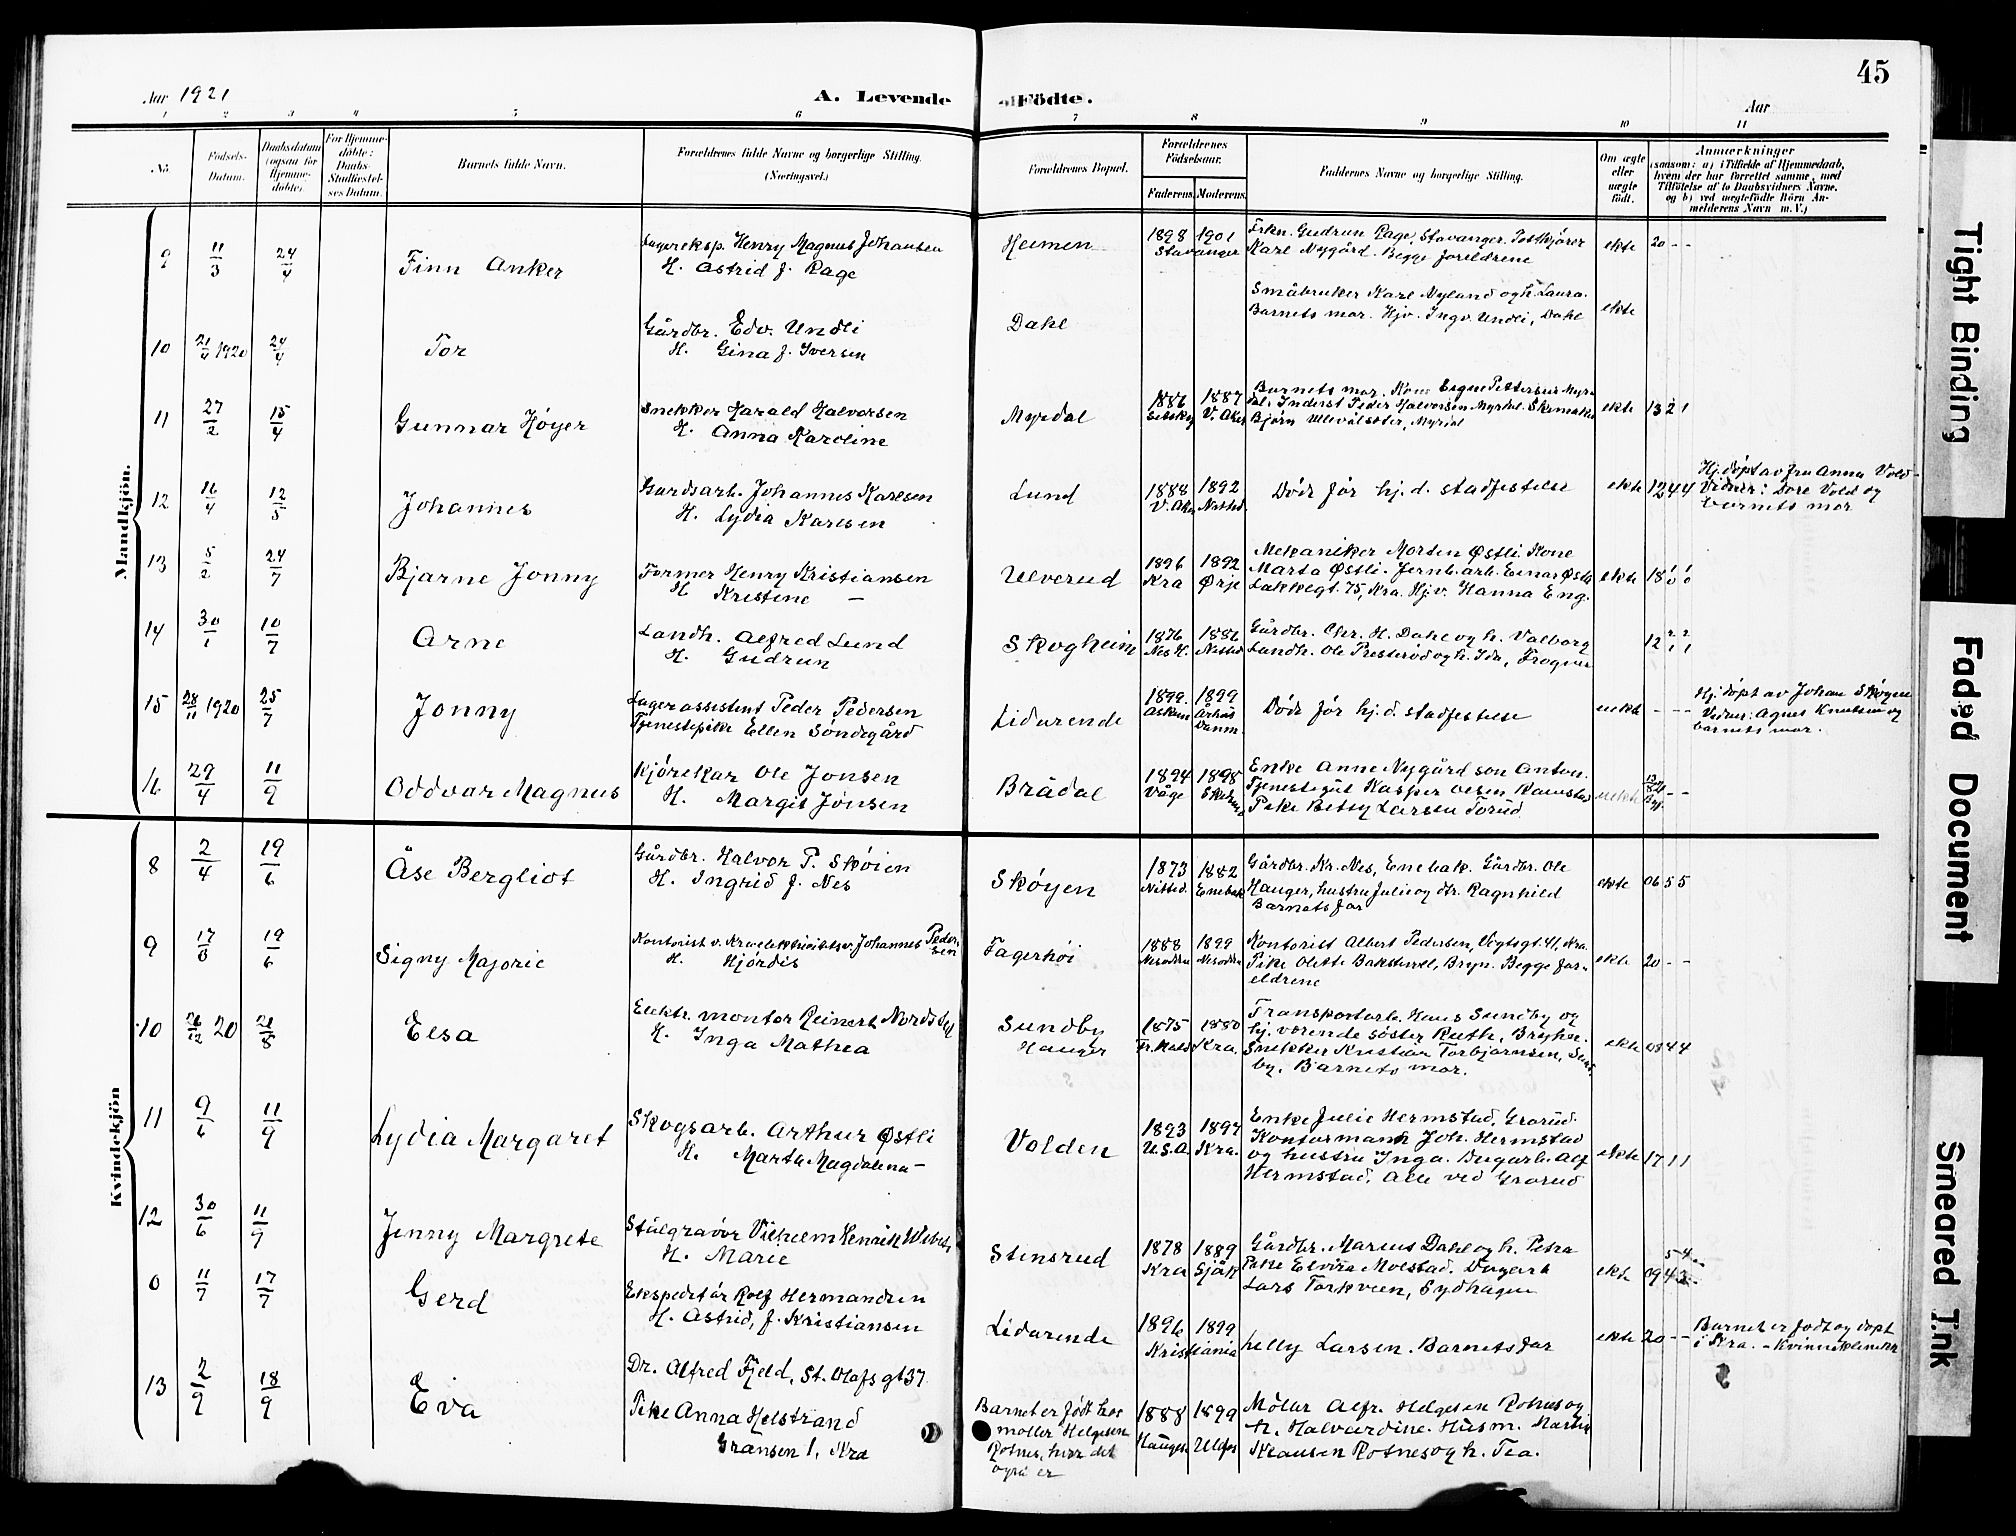 45
Aar 1921
A. Levende
Födte.
Aar
1 2 3 4 5 6 7 8 9 10 11
No.
Födsels-Datum.
Daabsdatum (ogsaa for Hjemme-döbte)
For Hjemme-döbte: Daabs-Stadfæstel-ses Datum.
Barnets fulde Navn.
Forældrenes fulde Navne og borgerlige Stilling. (Næringsvei.)
Forældrenes Bopæl.
Forældrenes Födselsaar.
Faderens. Moderens.
Faddernes Navne og borgerlige Stilling.
Om ægte eller uægte födt.
Anmærkninger
(saasom: a) i Tilfælde af Hjemmedaab,
hvem der har forrettet samme, med
Tilföielse af to Daabsvidners Navne.
og b) ved uægtefödte Börn An-
melderens Navn m. V.)
Mandkjön.
9 11/3 24/4 Finn Anker
Lagereksp. Henry Magnus Johansen
H. Astrid f. Rage
Heimen
1898 1901
Stavanger
Frkn. Gudrun Rage, Stavanger. Postkjører
Karl Nygård. Begge foreldrene
ekte 20 - -
10 21/4 1920 24/4 Tor
Gårdbr. Edv. Undli
H. Gina f. Iversen
Dahl
Småbruker Karl Nyland og h. Laura.
Barnets mor. Hjv. Ingv. Undli, Dahl
ekte
11 27/2 15/4 Gunnar Høyer
Snekker Harald Halvorsen
H. Anna Karoline
Myrdal
1886 1887
V. Aker
Barnets mor. Kone Signe Pettersen Myr-
dal. Inderst Peder Halvorsen Myrdal.
Bjørn Ullevålseter, Myrdal
ekte 13 2 1
12 16/4 12/5 Johannes
Gardsarb. Johannes Karlsen
H. Lydia Karlsen
Lund
1888 1892
V. Aker Nitted.
Døde før hj.d. stadfestelse
ekte 12 4 4
Hj. døpt av fru Anna Vold
Vidner: Dore Vold og
barnets mor
13 5/2 24/7 Bjarne Jonny
Former Henry Kristiansen
H. Kristine —
Ulverud
1896 1892
Kra Ørje
Mekaniker Morten Østli. Kone
Marta Østli. Jernb.arb. Einar Østli
Lakkegt. 75, Kra. Hjv. Hanna Eng.
ekte 18
14 30/1 10/7 Arne
Landh. Alfred Lund
H. Gudrun
Skogheim
1876 1886
Nes H. Nitted
Gårdbr. Chr. H. Dahl og h. Valborg
Landh. Ole Presterød og h. Ida, Frogner
12
15 28/11 1920 25/7 Jonny
Lagerassistent Peder Pedersen
Tjenestepike Ellen Söndegård
Lidarende
1899 1899
Askim Århus Danm.
Døde før hj.d. stadfestelse
uekte - - -
Hj. døpt av Johan Skøgen
Vidner: Agnes Knutsen og
barnets mor.
16 29/4 11/9 Oddvar Magnus
Kjörekar Ole Jonsen
H. Margit Jonsen
Brådal
1894 1898
Våge
Enke Anne Nygård son Anton.
Tjenestegut Kasper Olsen Ramstad
Pike Betsy Larsen Torud
uekte
Kvindekjön
8 2/4 19/6 Åse Bergliot
Gårdbr. Halvor P. Skøien
H. Ingrid f. Nes
Skøyen
1873 1882
Nitted. Enebak
Gårdbr. Kr. Nes, Enebak. Gårdbr. Ole
Hauger, hustru Julie og dtr. Ragnhild
Barnets far
ekte 06 5 5
9 17/3 19/6 Signy Majorie
Kontorist v. Kra elektricitetsv. Johannes Peder-
sen
H. Hjørdis
Fagerhøi
1888 1899
Nesodden Nesodden
Kontorist Albert Pedersen, Vogtsgt. 41, Kra.
Pike Olette Bakstvell, Bryn. Begge for-
eldrene
ekte 20 - -
10 26/12 20 21/8 Elsa
Elektr. montør Reinert Nordstad
H. Inga Mathea
Sundby
Hauger
1875 1880
Fr.hald Kra.
Transportarb. Hans Sundby og
hj. værende søster Ruth,
Snekker Kristian Torbjørnsen, Sund-
by. Barnets mor.
ekte 08 4 4
11 9/6 11/9 Lydia Margaret
Skogsarb. Arthur Østli
H. Marta Magdalena —
Volden
1893 1897
U.S.A Kra.
Enke Julie Hermstad, Grorud.
Kontormann Joh. Hermstad
og hustru Inga. Alf
Hermstad. Alle ved Grorud
ekte 17 1 1
12 30/6 11/9 Jenny Margrete
Stålgravør Vilhelm Henrik
H. Marie
Stensrud
1878 1889
Kra Sjåk
Gårdbr. Marius Dahl og h. Petra
Pike Elvira Molstad.
Lars Torkveen, Sydhagen
ekte 09 4 3
0 11/7 17/7 Gerd
Ekspeditør Rolf Hermandsen
H. Astrid, f. Kristiansen
Lidarende
1896 1899
Kristiania
Larsen. Barnets far
ekte 20 - -
Barnet er født og døpt
i Kra. - Kvinneklinikk
13 2/9 18/9 Eva
Dr. Alfred Fjeld, St. Olafs gt 37
Pike Anna Helstrand
Gransen 1, Kra
Barnet er født hos
møller Helgesen
Rotnes, hvor det
også er
1888 1899
Hauges Ulefos
Møller Alfr. Helgesen Rotnes og
h. Halvardine. Husm. Martin
Klausen Rotnes og h. Tea.
Tight Binding
Faded Document
Smeared Ink